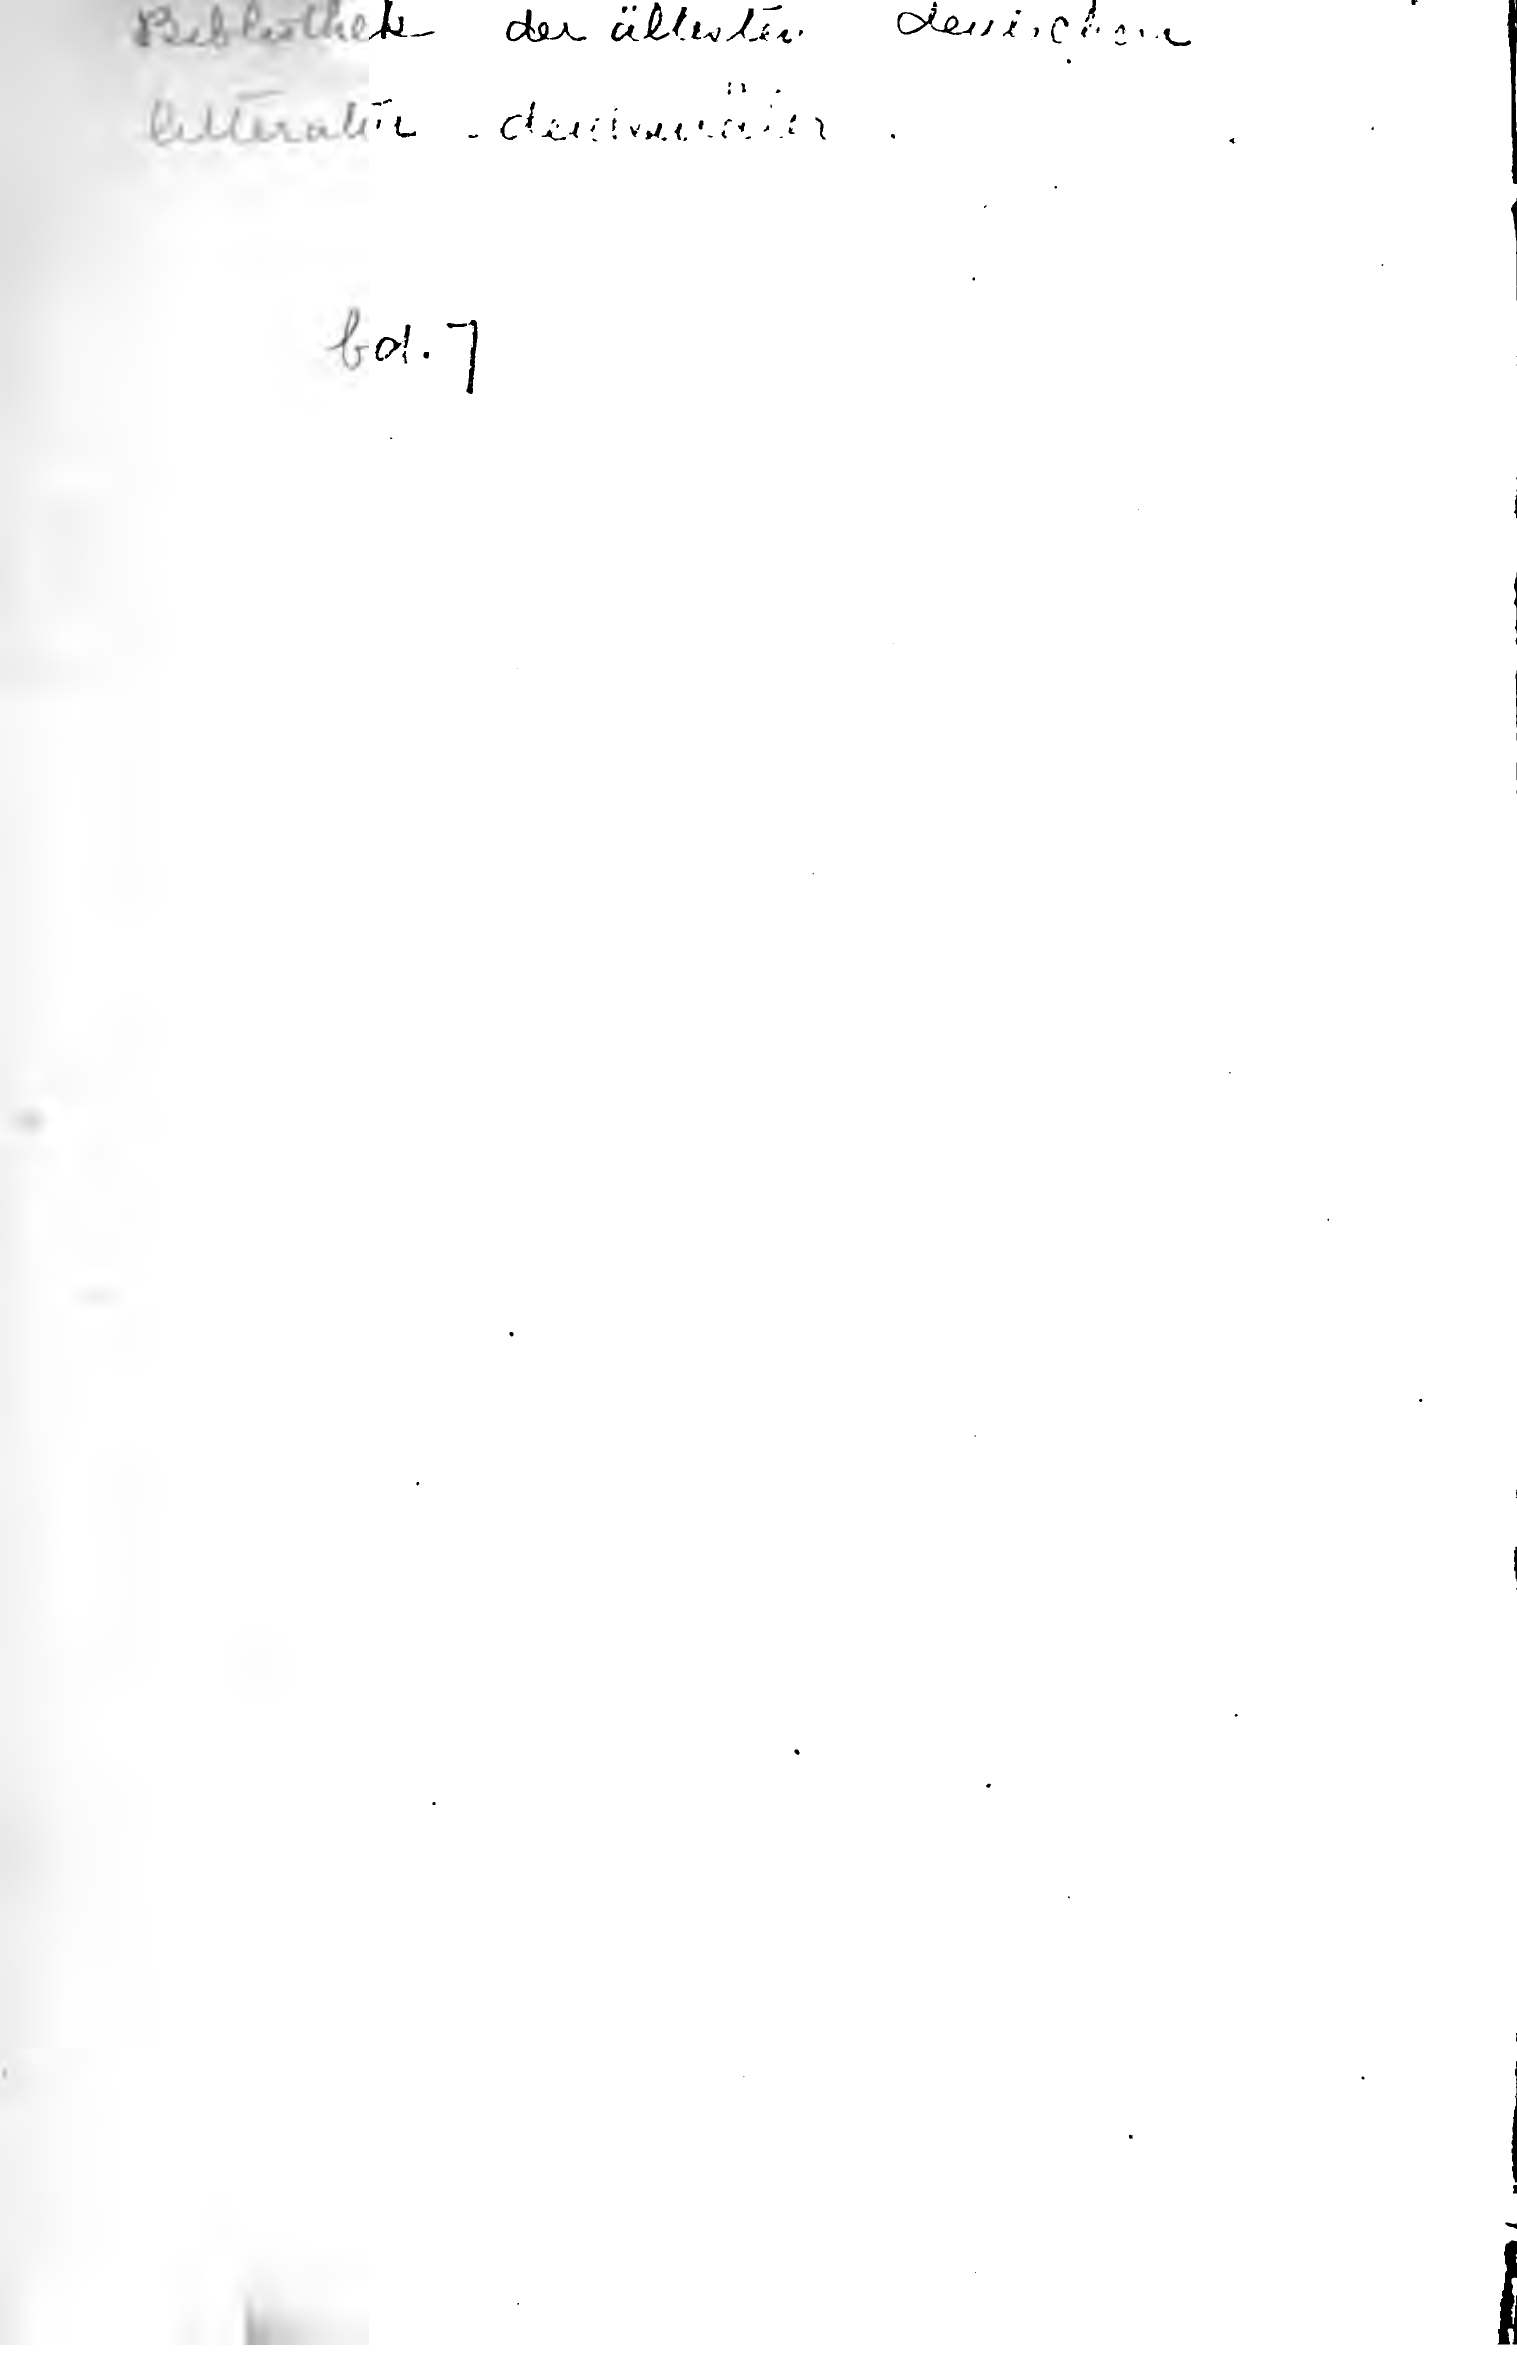 Bibliothek der ältesten deutschen
litteratur-denkmäler.
bd. 7